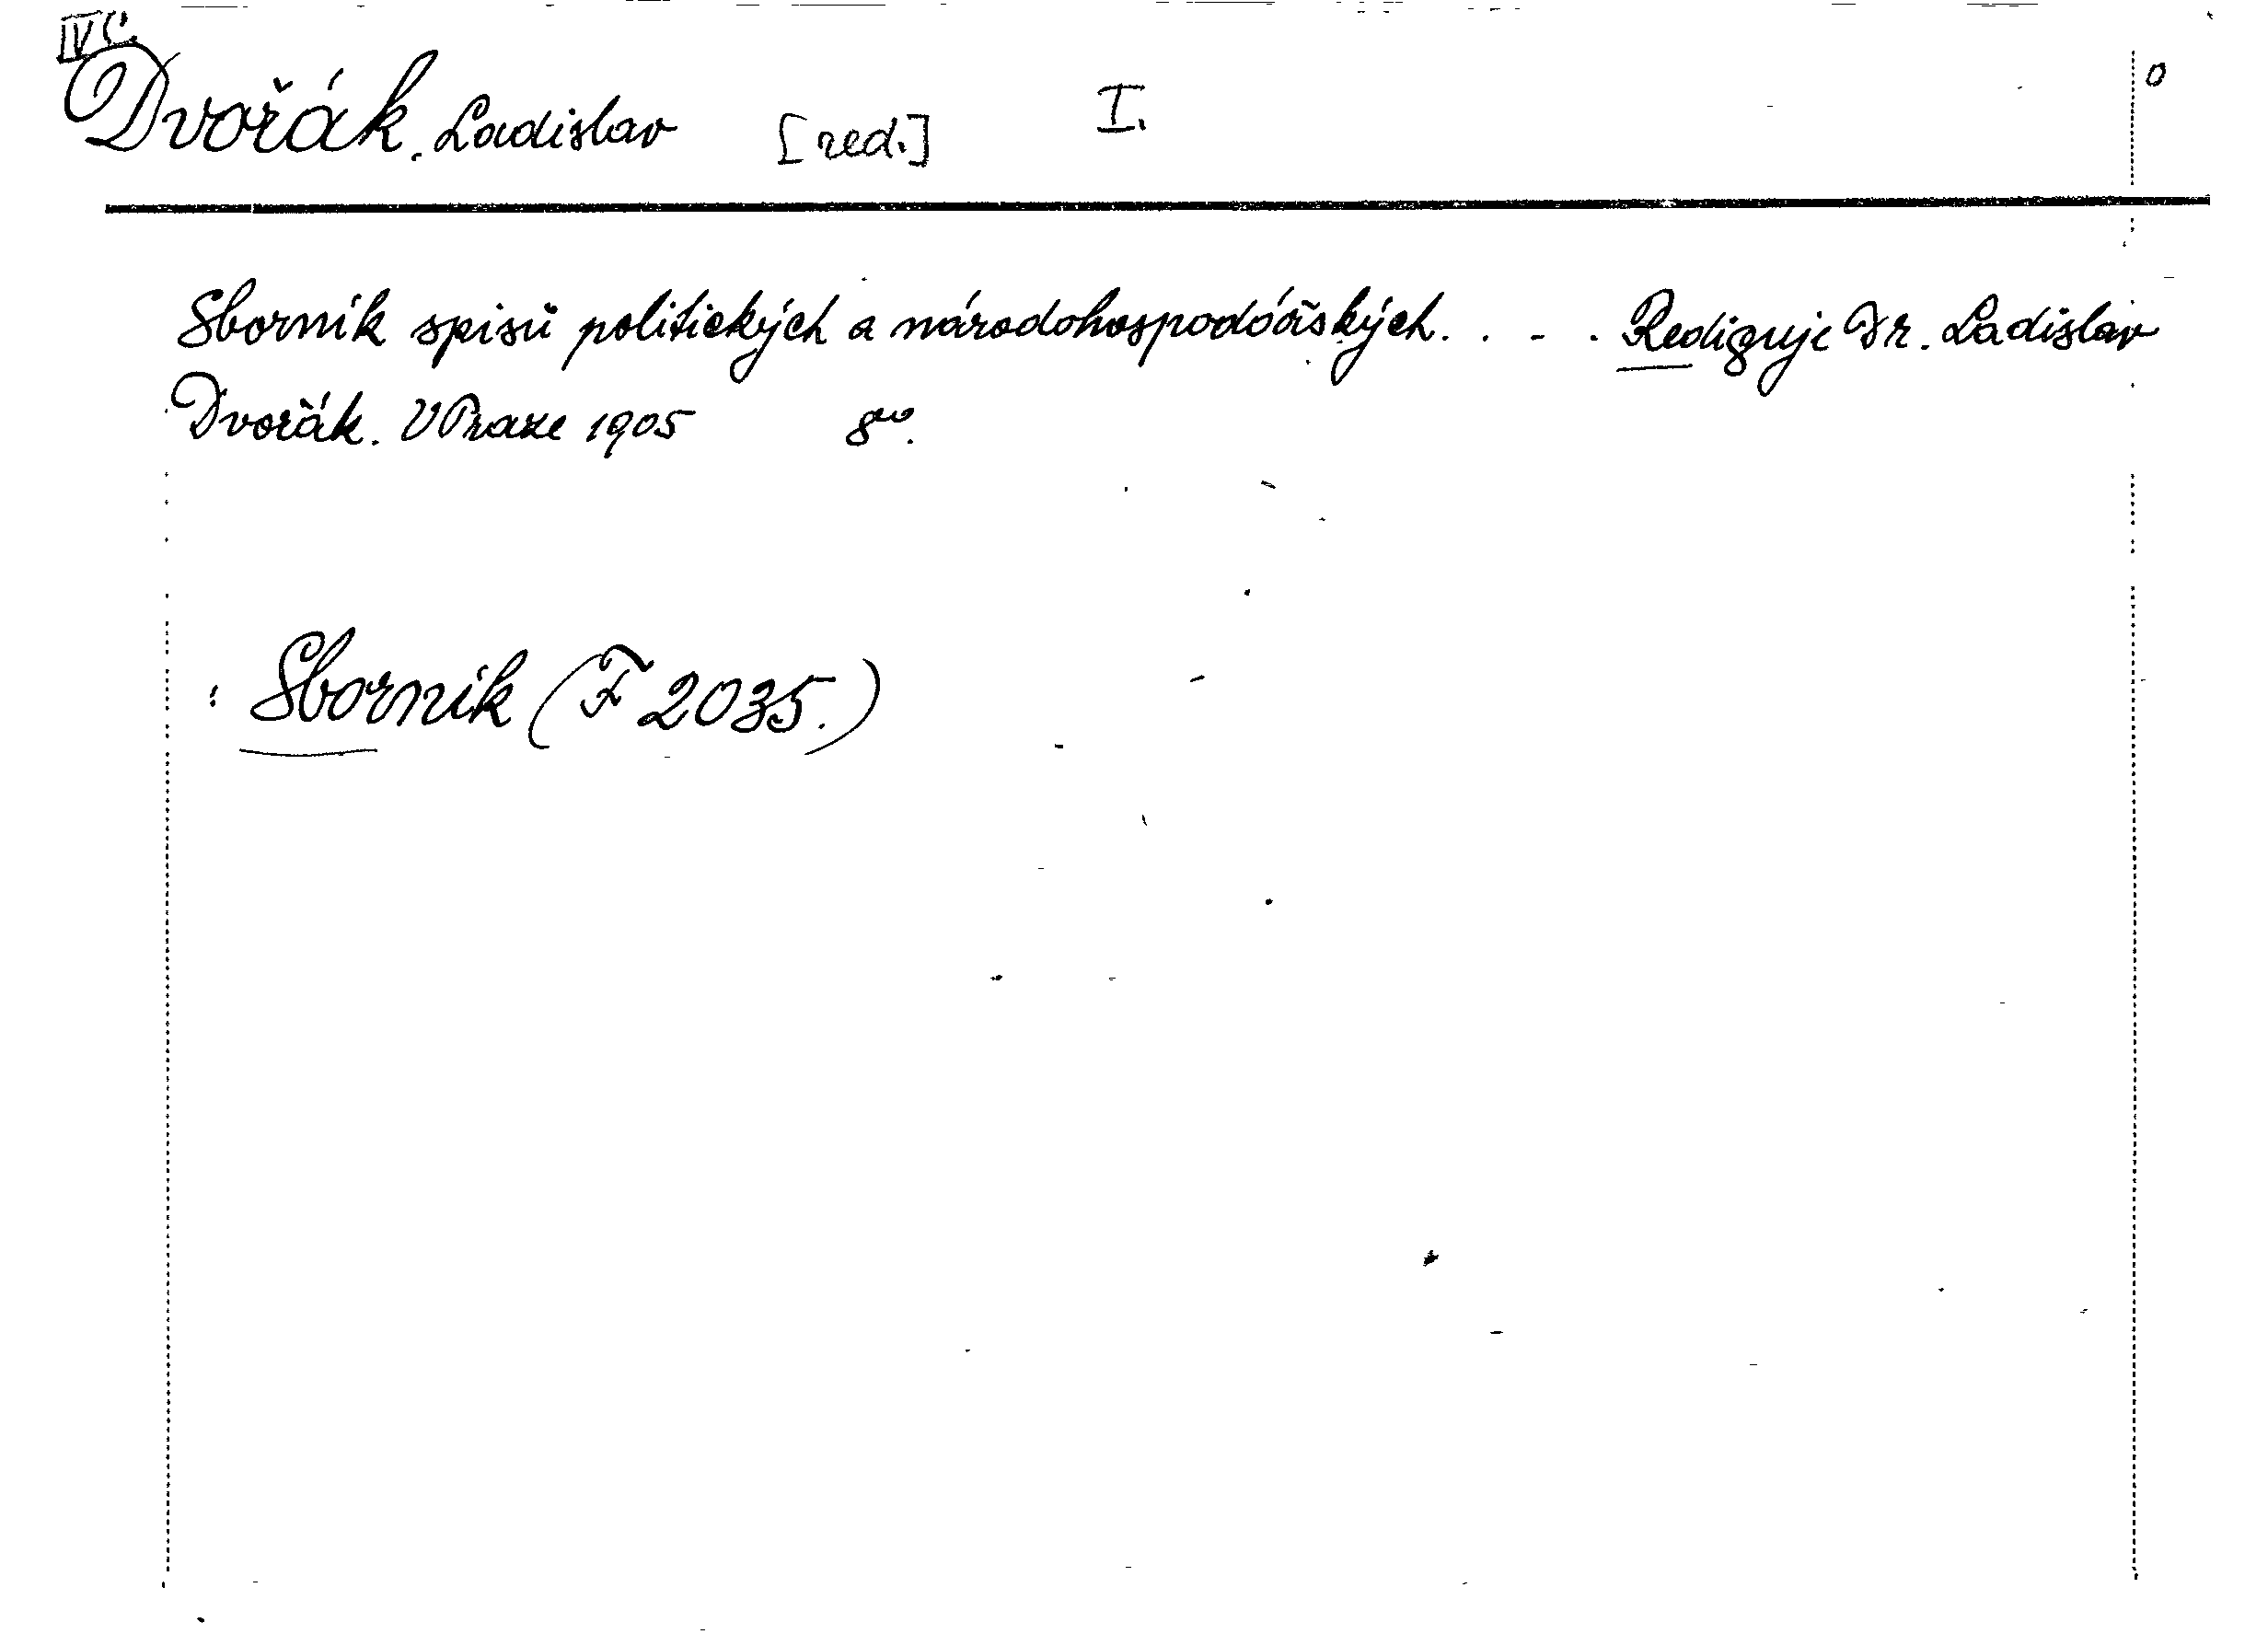 IV C.
Dvořák, Ladislav [red.] I. 0
Sborník spisů politických a národohospodářských. . - . Rediguje Dr. Ladislav
Dvořák. V Praze 1905 8vo.
: Sborník (F 2035.)